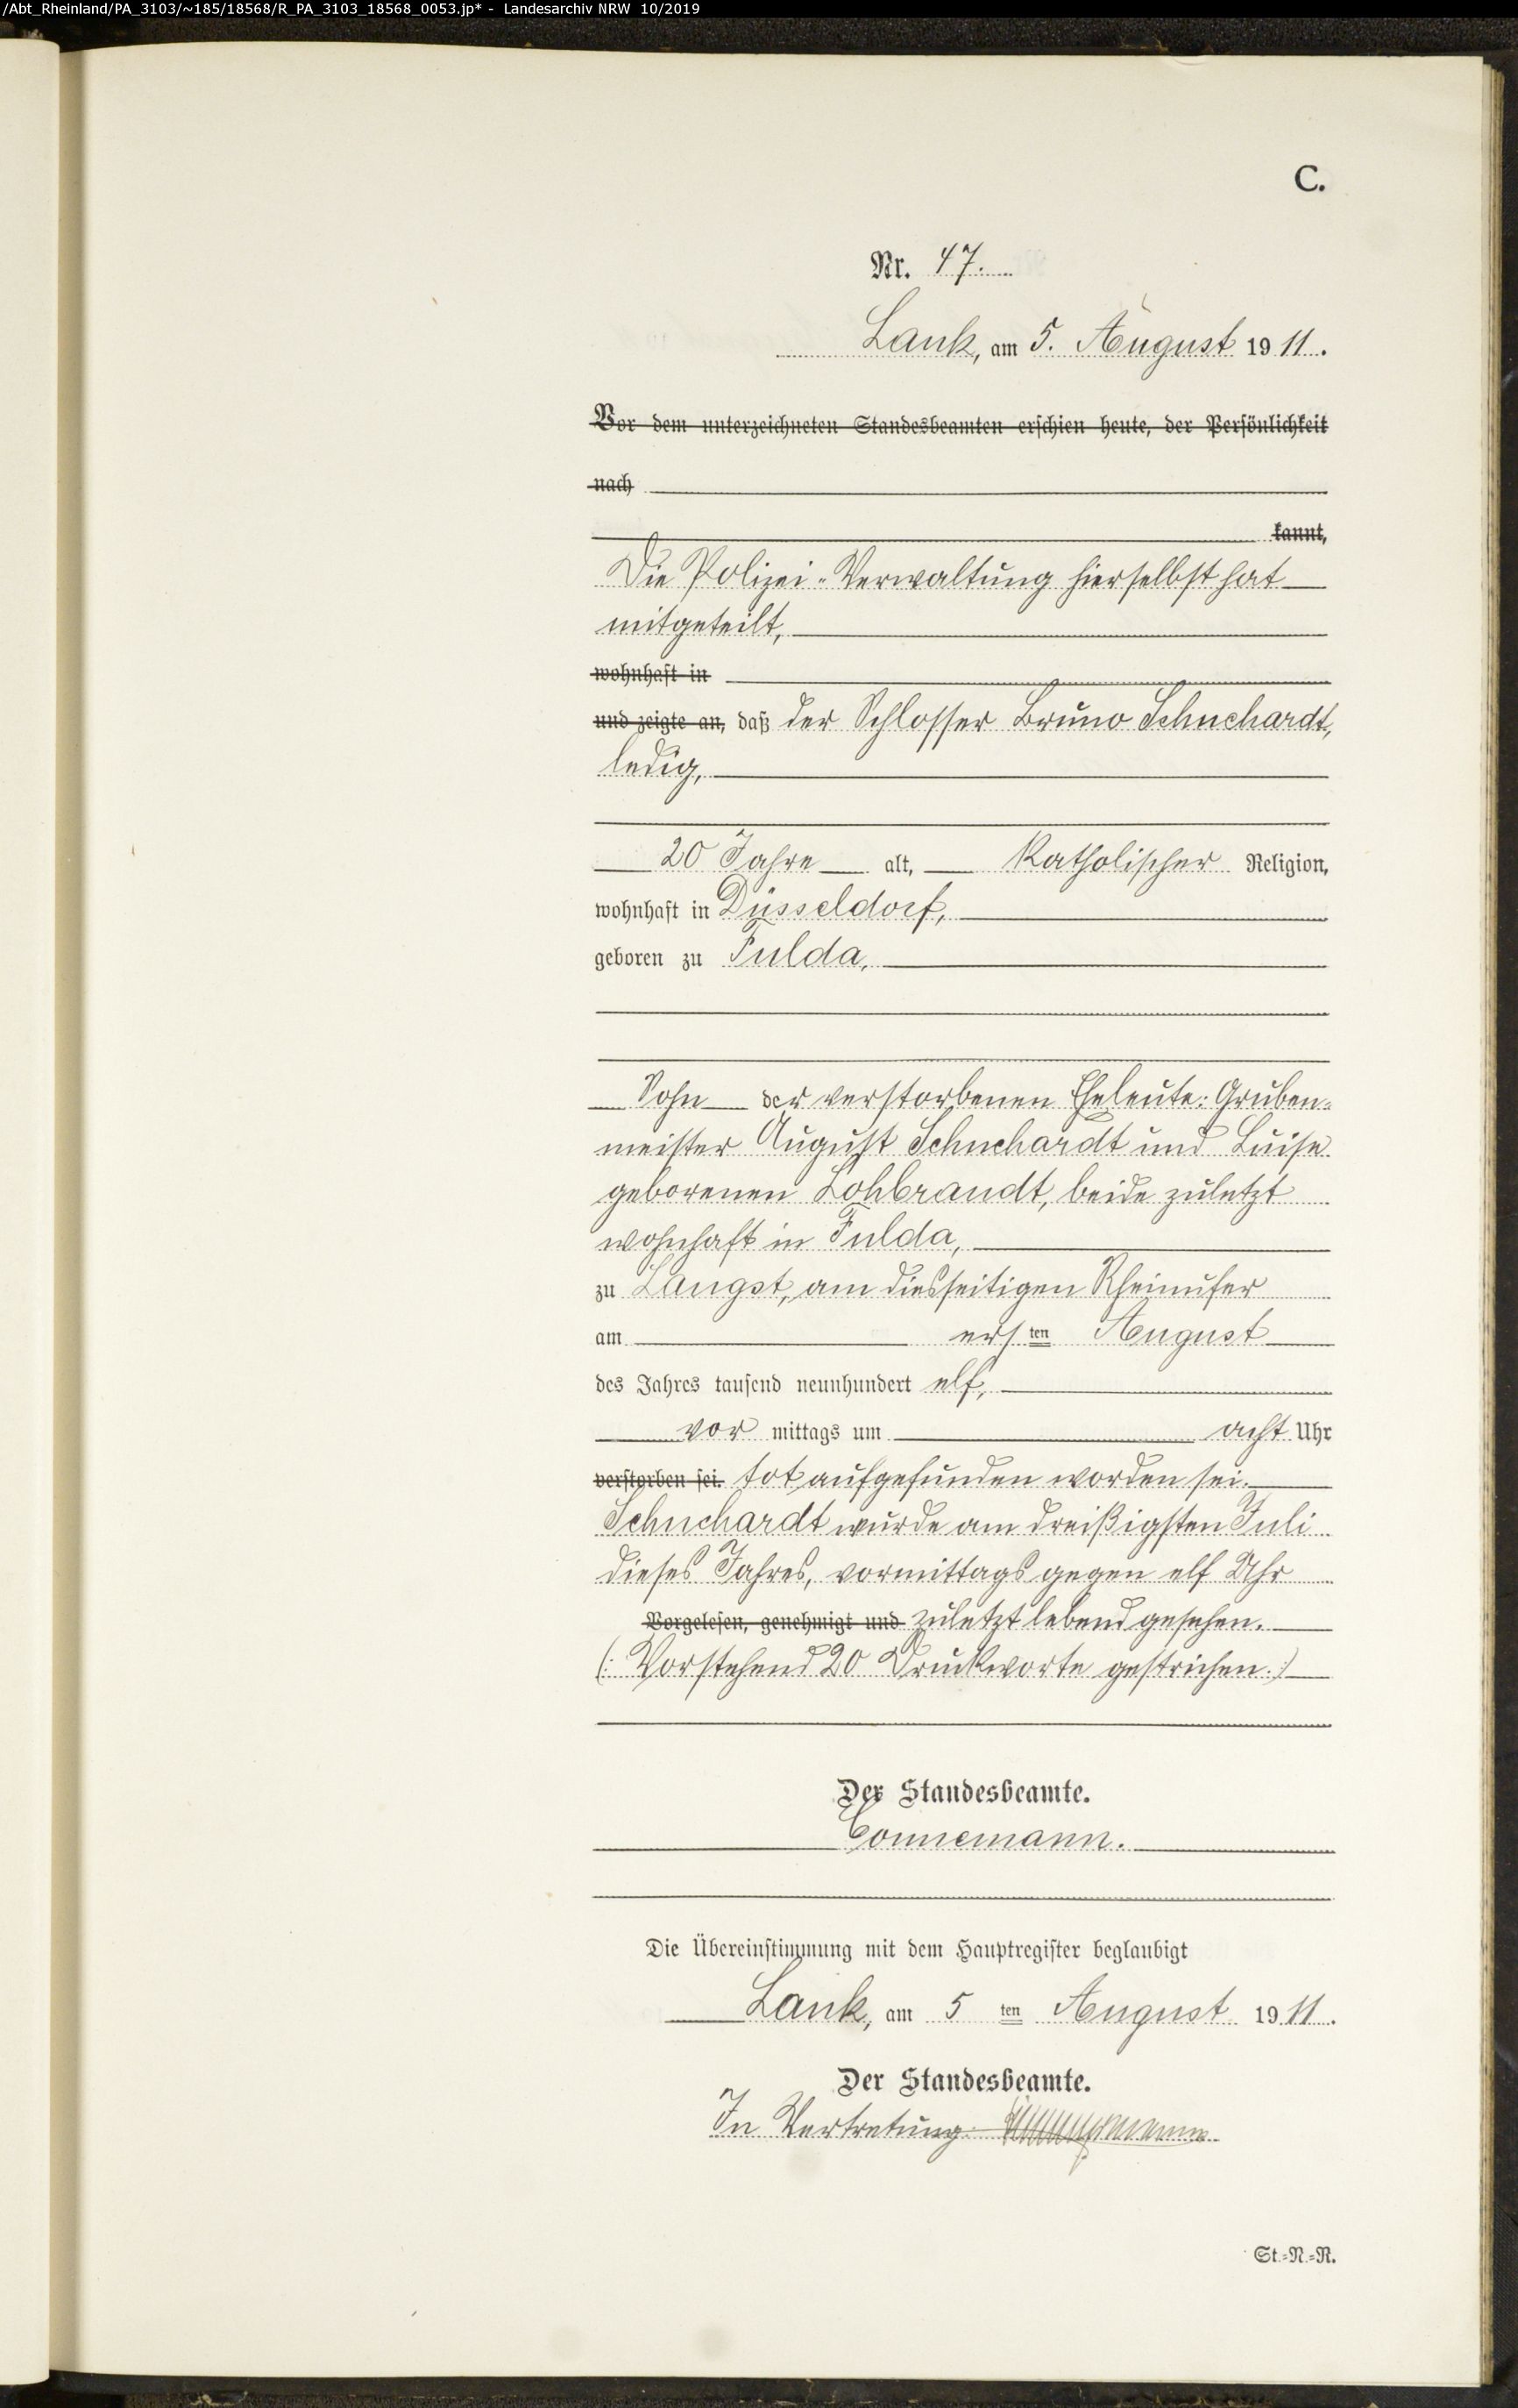 /Abt_Rheinland/PA_3103/~185/18568/R_PA_3103_18568_0053.jp* - Landesarchiv NRW 10/2019
C.
Nr. 47.
Lank, am 5. August 1911.
Vor dem unterzeichneten Standesbeamten erschien heute, der Persönlichkeit
nach
kannt,
Die Polizei-Verwaltung hierselbst hat
mitgeteilt,
wohnhaft in
und zeigte an, daß der Schlosser Bruno Schuchardt,
ledig,
20 Jahre alt, Katholischer Religion,
wohnhaft in Düsseldorf,
geboren zu Fulda,
Sohn der verstorbenen Eheleute: Gruben-
meister August Schuchardt und Luise
geborenen Lohbrandt, beide zuletzt
wohnhaft in Fulda,
zu Langst, am diesseitigen Rheinufer
am ersten August
des Jahres tausend neunhundert elf,
vor mittags um acht Uhr
verstorben sei. tot aufgefunden worden sei.
Schuchardt wurde am dreißigsten Juli
dieses Jahres, vormittags gegen elf Uhr
Vorgelesen, genehmigt und zuletzt lebend gesehen.
(: Vorstehend 20 Druckworte gestrichen. :)
Der Standesbeamte.
Connemann.
Die Übereinstimmung mit dem Hauptregister beglaubigt
Lank, am 5ten August 1911.
Der Standesbeamte.
In Vertretung:
St.-N.-R.